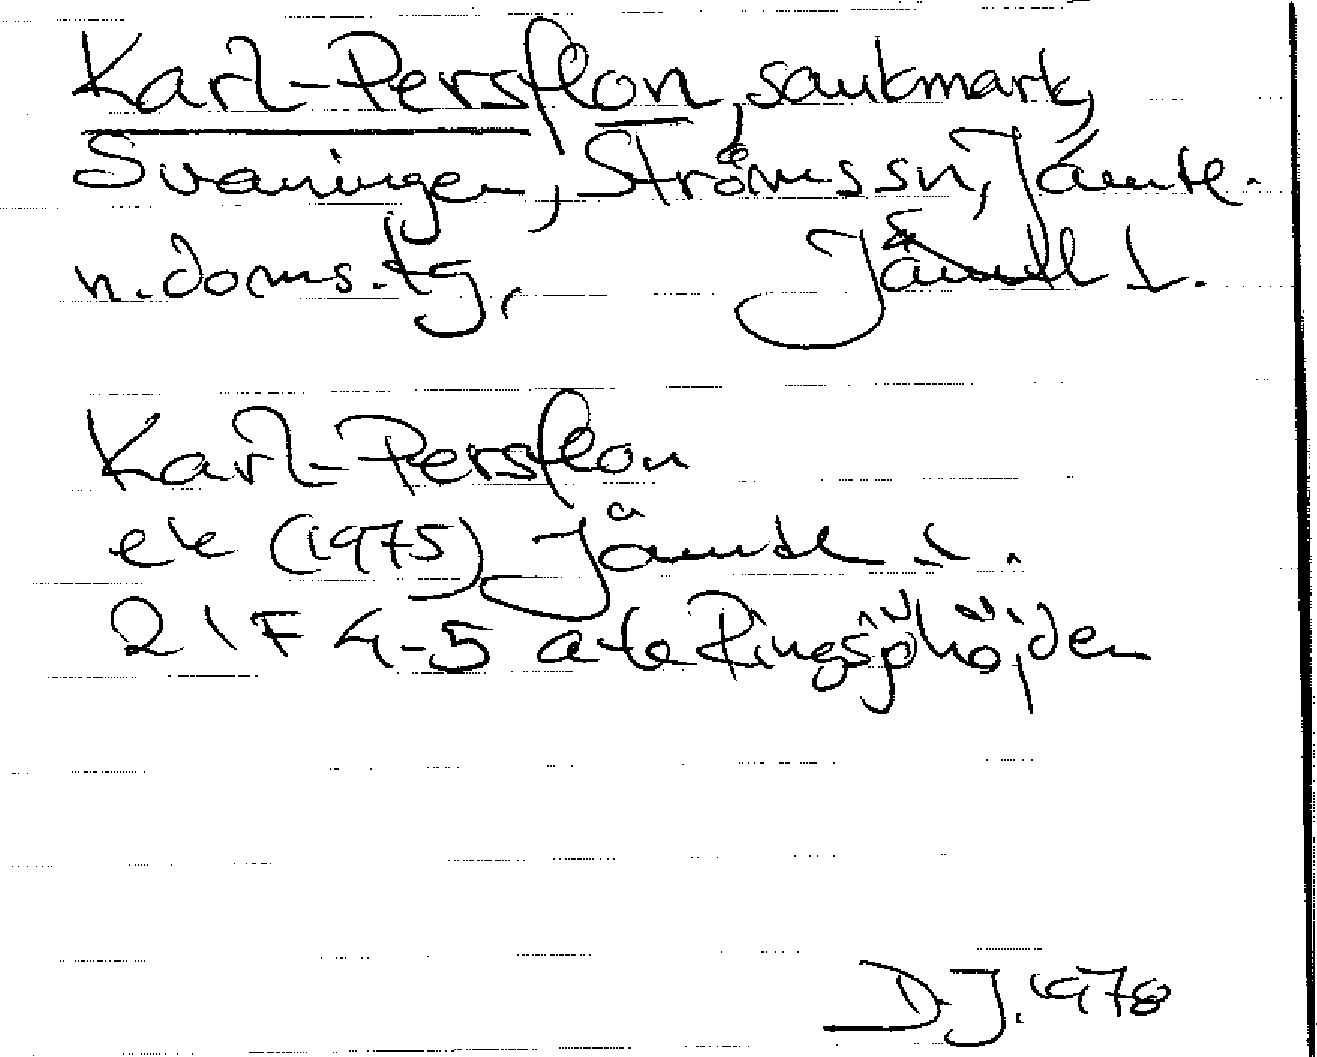 Karl-Persflon, sankmark,
Svaningen, Ströms sn, Jämtl.
n. doms. tg, Jämtl l.
Karl-Persflon
ek (1975) Jämtl l.
21F 4-5 a-b Ringsjöhöjden
D.J. 1978